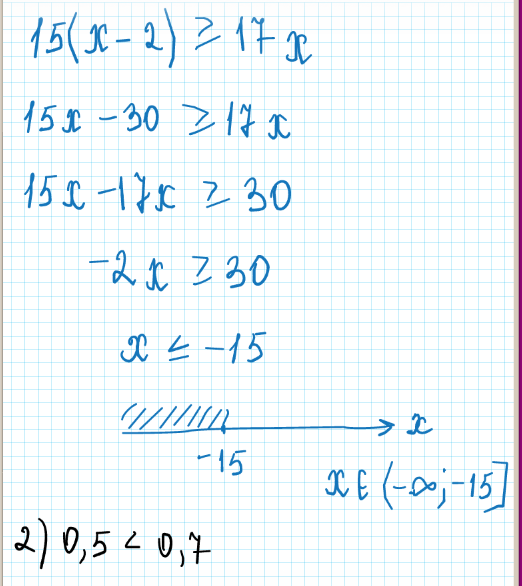 15(x-2) ≥ 17x
15x-30 ≥ 17x
15x-17x ≥ 30
-2x ≥ 30
x ≤ -15
x
-15
x ∈ (-∞; -15]
2) 0,5 < 0,7